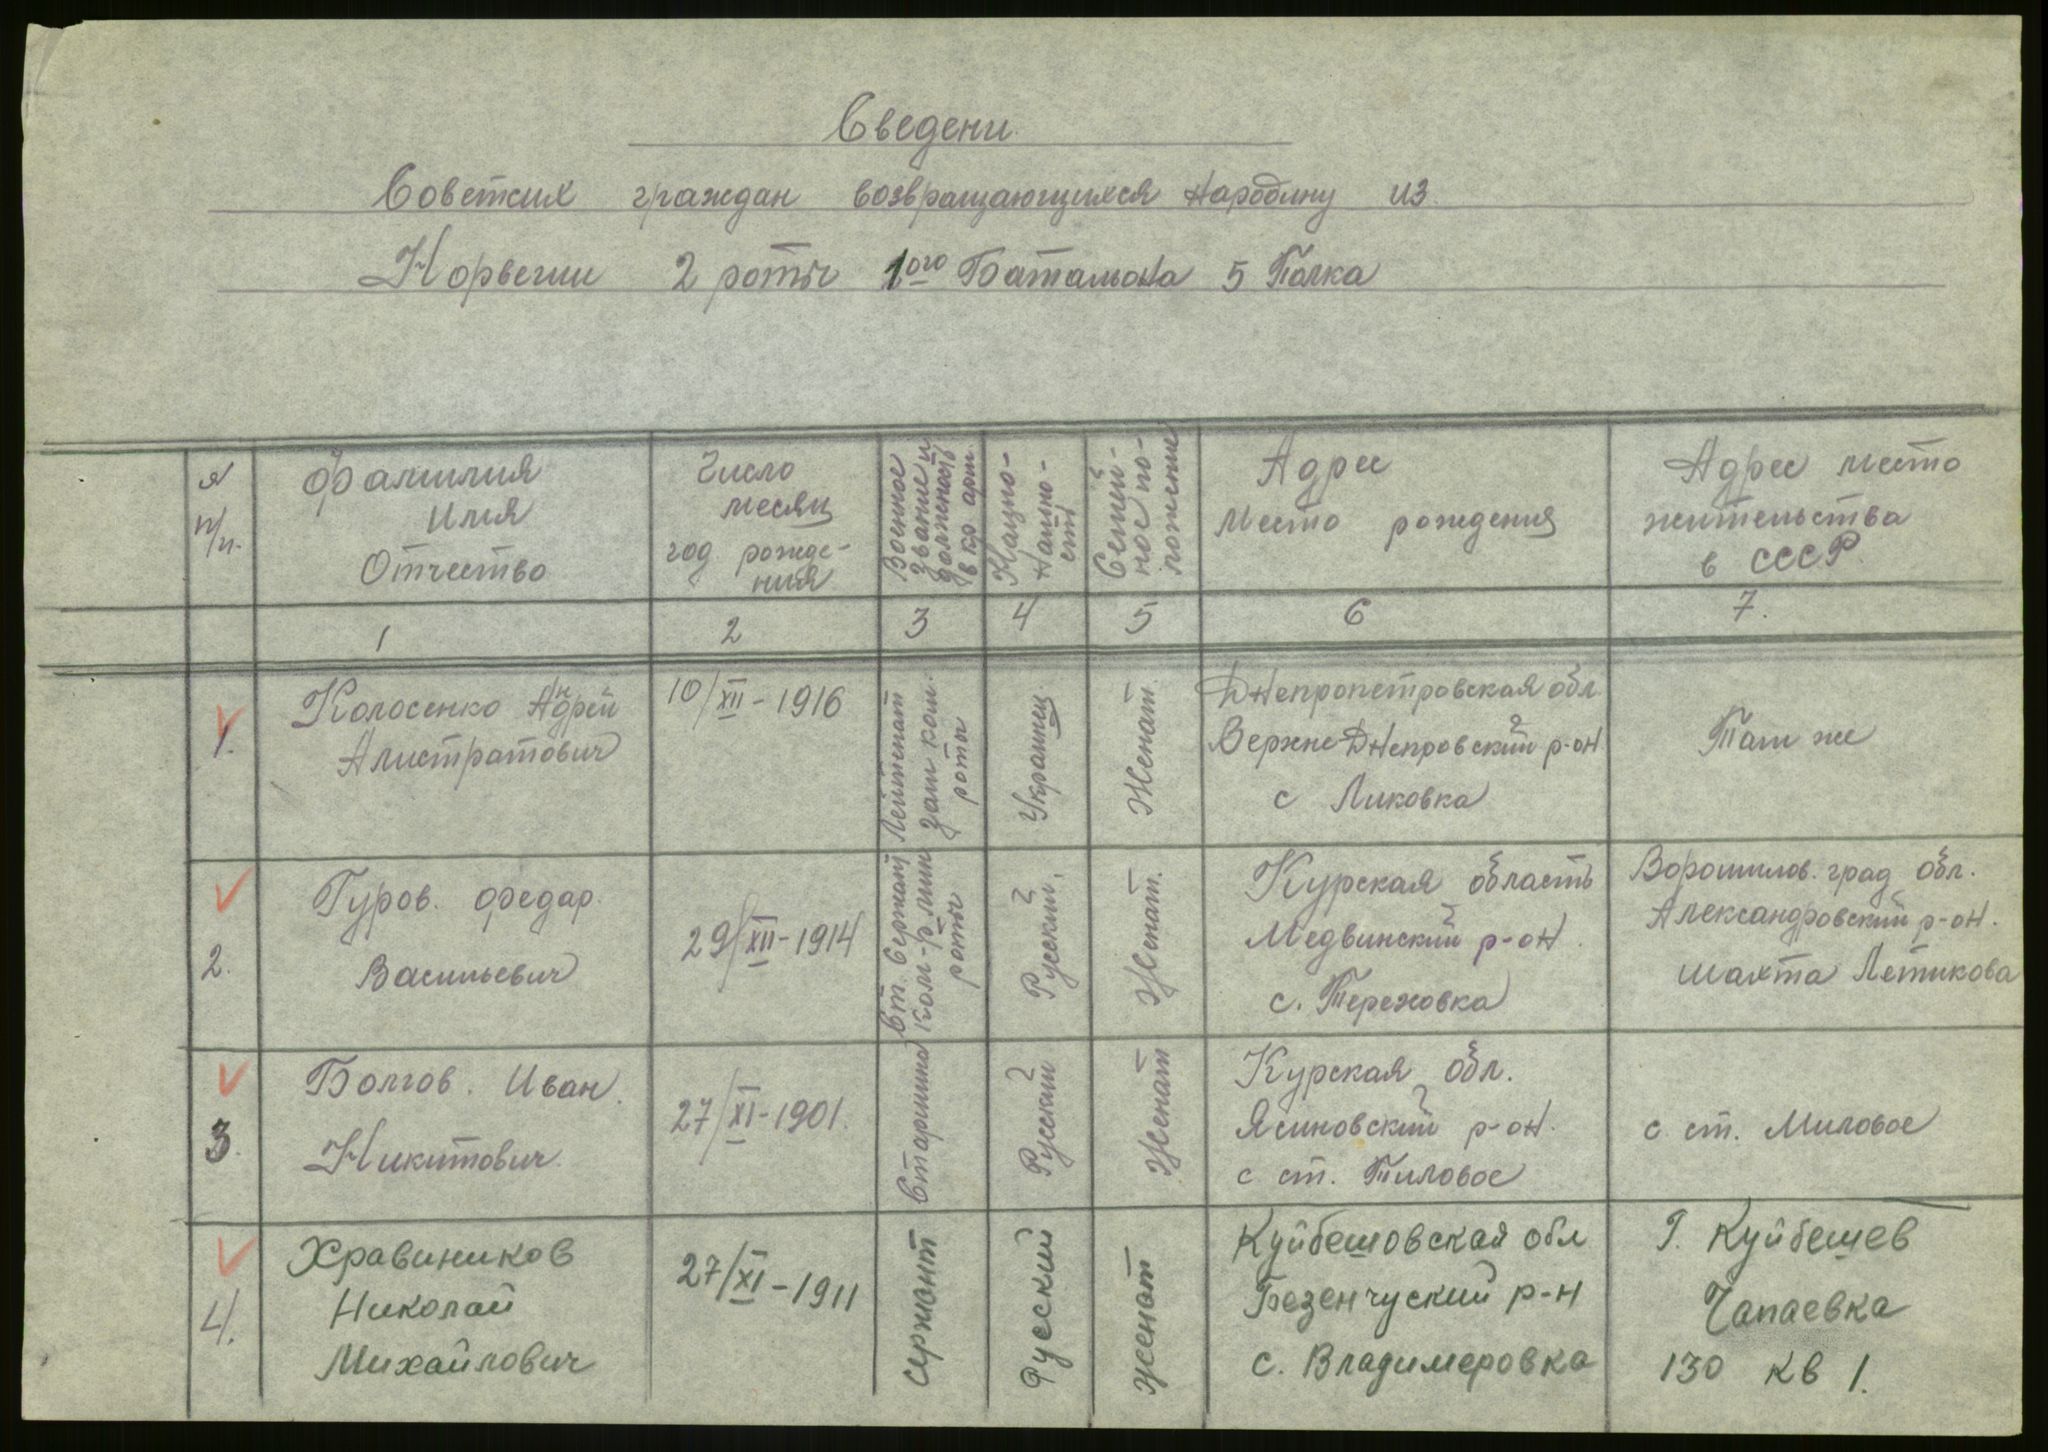 Сведени
Советских граждан возвращающихся народину из
Норвегии 2 роты 1ого Батальона 5 Полка
№ п/п.
Фамилия
Имя
Отчество
Число
месяц
год рожде-
ния
Военное
звание и
должность
в кр арм.
Нацио-
нально-
сть
Семей-
ное по-
ложение
Адрес
место рождения
Адрес место
жительства
в СССР.
1
2
3
4
5
6
7.
1.
Колосенко Андрей
Алистратович
10/XII-1916
Лейтенант
зам ком.
роты
Украинец
Женат.
Днепропетровская обл.
Верхне Днепровский р-он
с Лиховка
Там же
2.
Гуров. Федар.
Васильевич
29/XII-1914
Ст. Сержант
Ком-р. мин
роты
Русский.
Женат.
Курская область
Медвинский р-он.
с. Тереховка
Ворошилов. град обл.
Александровский р-он.
шахта Летикова
3.
Болгов. Иван.
Никитович.
27/XI-1901.
Старшина
Русский
Женат
Курская обл.
Ясиновский р-он.
с ст. Тиловое
с ст. Миловое
4.
Хравиников
Николай
Михайлович
27/XI-1911
Сержонт
Русский
женот
Куйбешовская обл
Безенчуский р-н
с. Владимеровка
Г. Куйбешев
Чапаевка
130 кв 1.